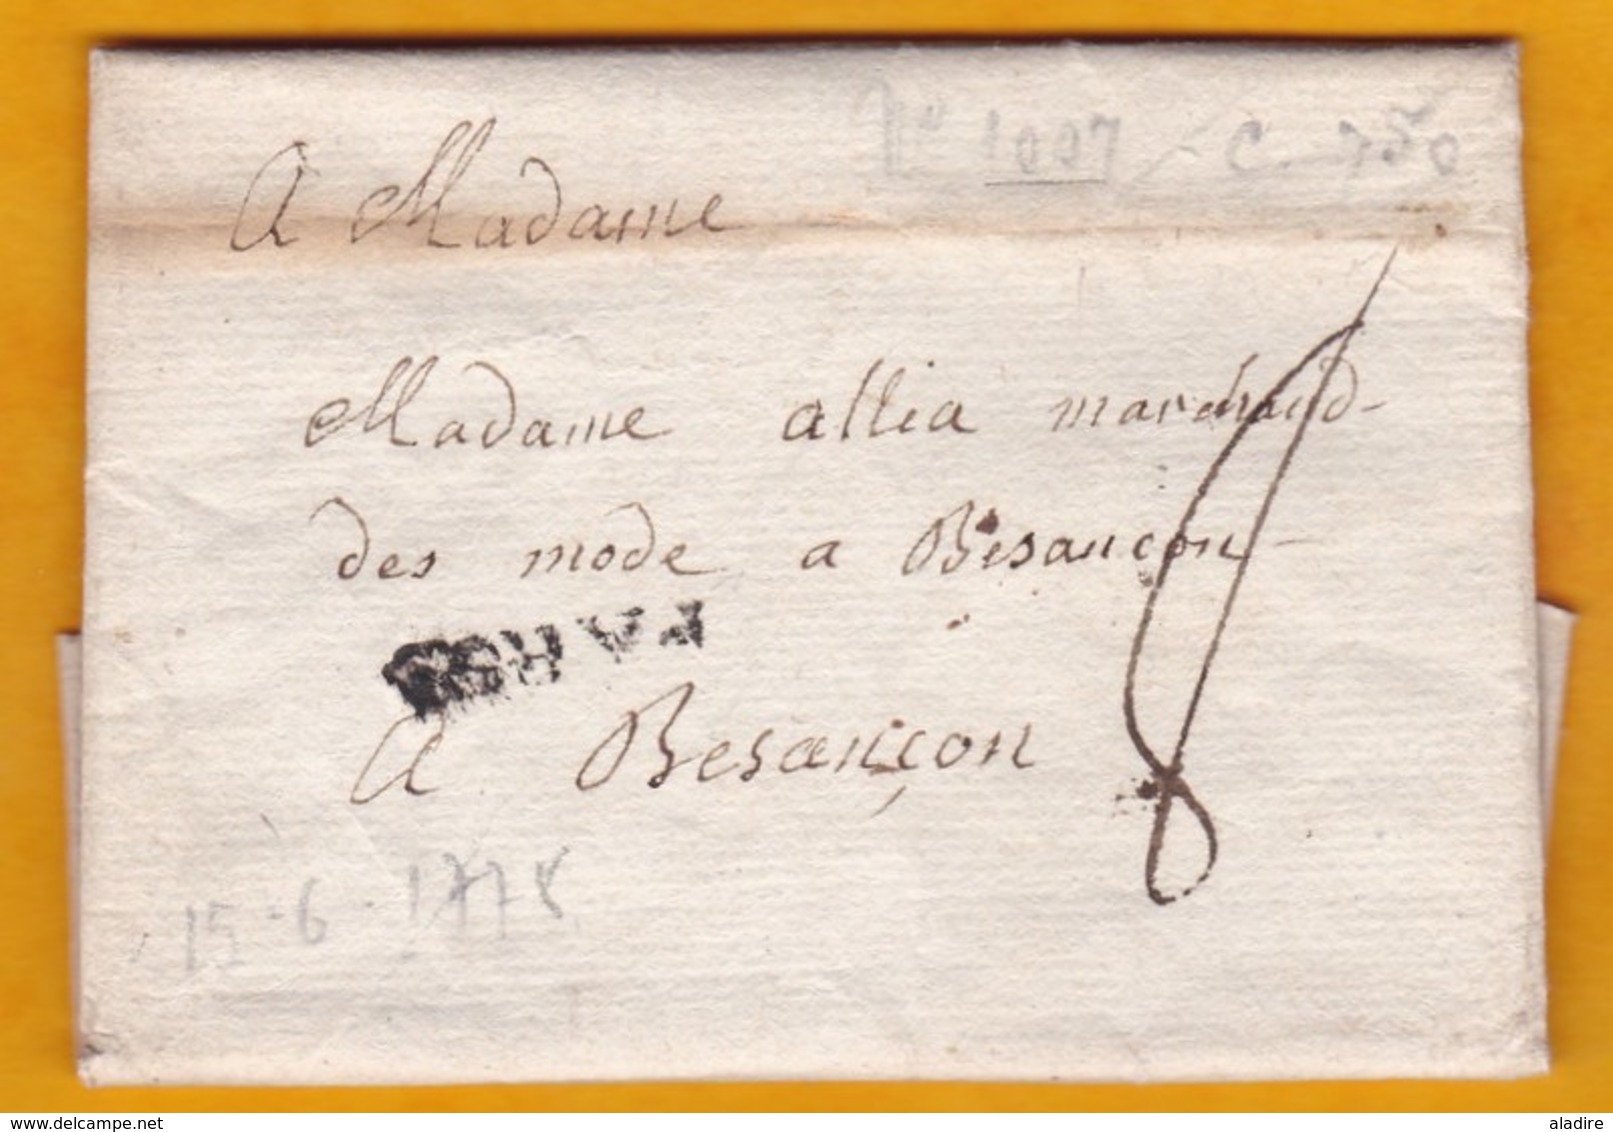 N° 1007 - C. 750
A Madame
Madame allia marchand-
des mode a Besançon-
PARIS
a Besançon
8
15-6-1778
delcampe.net
aladire